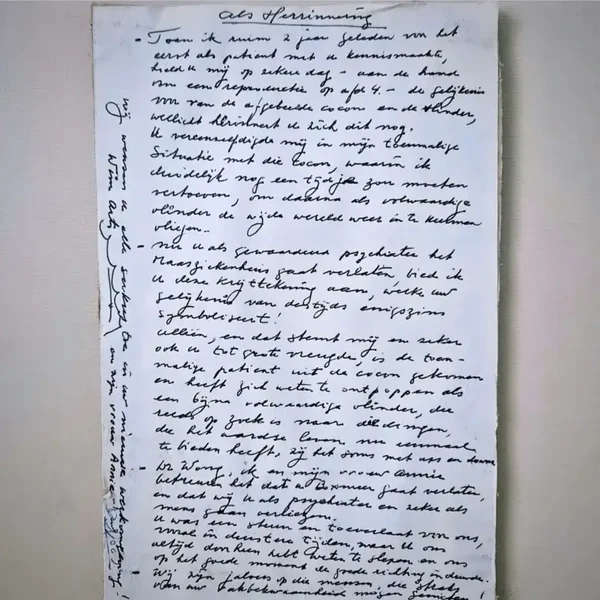 als Herinnering
- Toen ik ruim 2 jaar geleden voor het
eerst als patient met de kennismaakte,
hield u mij op zekere dag - aan de hand
van een reproductie op afd 4. - de gelijkenis
voor van de afgebeelde cocon en de vlinder,
wellicht herinnert u zich dit nog.
U vereenzelfdigde mij in mijn toenmalige
Situatie met die cocon, waarin ik
duidelijk nog een tijdje zou moeten
vertoeven, om daarna als volwaardige
vlinder de wijde wereld weer in te kunnen
vliegen.
- Nu u als gewaardeerd psychiater het
Maasziekenhuis gaat verlaten bied ik
u deze krijttekening aan, welke uw
gelijkenis van destijds enigszins
symboliseert!
Alleen, en dat stemt mij en zeker
ook u tot grote vreugde, is de toen-
malige patient uit de cocon gekomen
en heeft zich weten te ontpoppen als
een bijna volwaardige vlinder, die
reeds op zoek is naar die dingen,
die het aardse leven nu eenmaal
te bieden heeft, zij het soms met en
- Dr Wong, ik en mijn vrouw Annie
betreuren het dat u Boxmeer gaat verlaten,
en dat wij u als psychiater en zeker als
mens gaan verliezen.
U was een steun en toeverlaat voor ons,
vooral in duistere tijden, waar u ons
altijd doorheen hebt weten te slepen en ons
op het goede moment de goede richting in duwde.
- Wij zijn jaloers op die mensen, die straks
van uw vakbekwaamheid mogen genieten
Wij wensen u alle succes toe in uw nieuwe werkomgeving!
Wim en mijn vrouw Annie